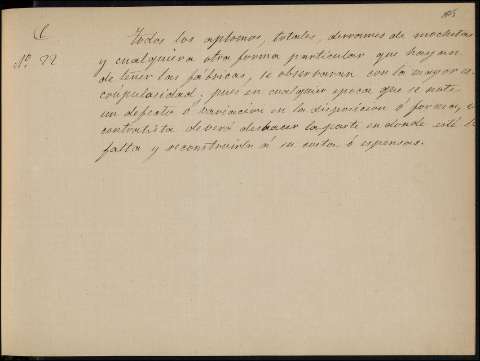 Todos los aplomos, totales, derrames de mochetas
Nº 22 y cualquiera otra forma particular que hayan
de tener las fábricas, se observaran con la mayor es-
crupulosidad; pues en cualquier epoca que se note
un defecto ó variacion en la disposicion ó forma, el
contratista deverá deshacer la parte en donde esté la
falta y reconstruirla á su costa ó espensas.